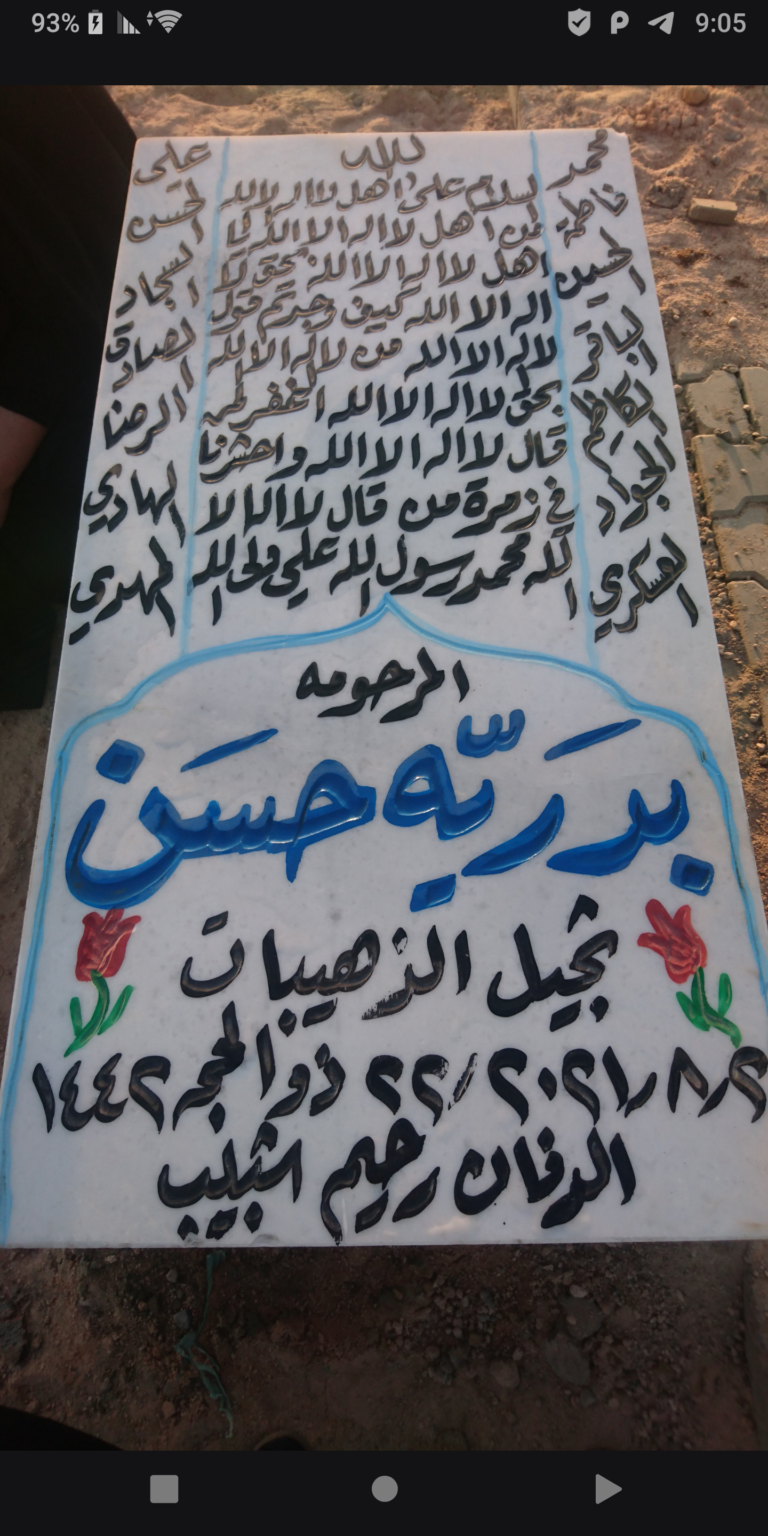 93% 9:05
الله
محمد
فاطمة
الحسين
الباقر
الكاظم
الجواد
العسكري
السلام على اهل لا اله الا الله
من اهل لا اله الا الله يا
اهل لا اله الا الله بحق لا
اله الا الله كيف وجدتم قول
لا اله الا الله من لا اله الا الله
بحق لا اله الا الله اغفر لمن
قال لا اله الا الله واحشرنا
في زمرة من قال لا اله الا
الله محمد رسول الله علي ولي الله
على
الحسن
السجاد
الصادق
الرضا
الهادي
المهدي
المرحومه
بدريه حسن
ثجيل الذهيبات
٢٠٢١/٨/٢ / ٢٢ ذو الحجه ١٤٤٢
الدفان رحيم اشبليب